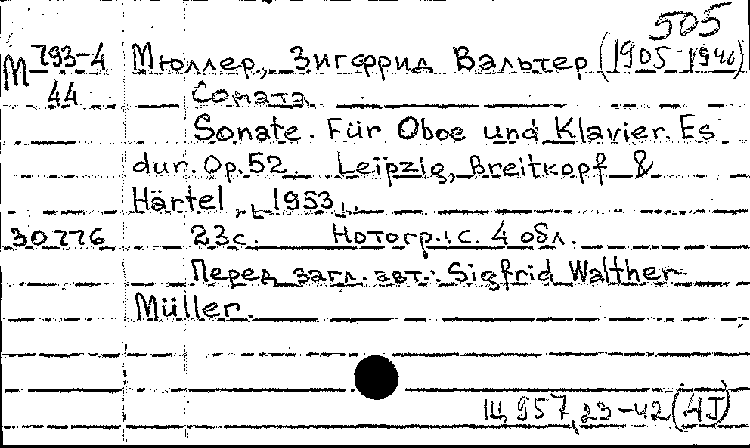 505
М 793-4 Мюллер, Зигфрид Вальтер (1905-1946)
44 Соната
Sonate. Für Oboe und Klavier. Es
dur. Op. 52. Leipzig, Breitkopf &
Härtel, [1953].
30776 23с. Нотогр.; с. 4 обл.
Перед загл. авт.: Sigfrid Walther
Müller.
Щ957,23-42(4J)